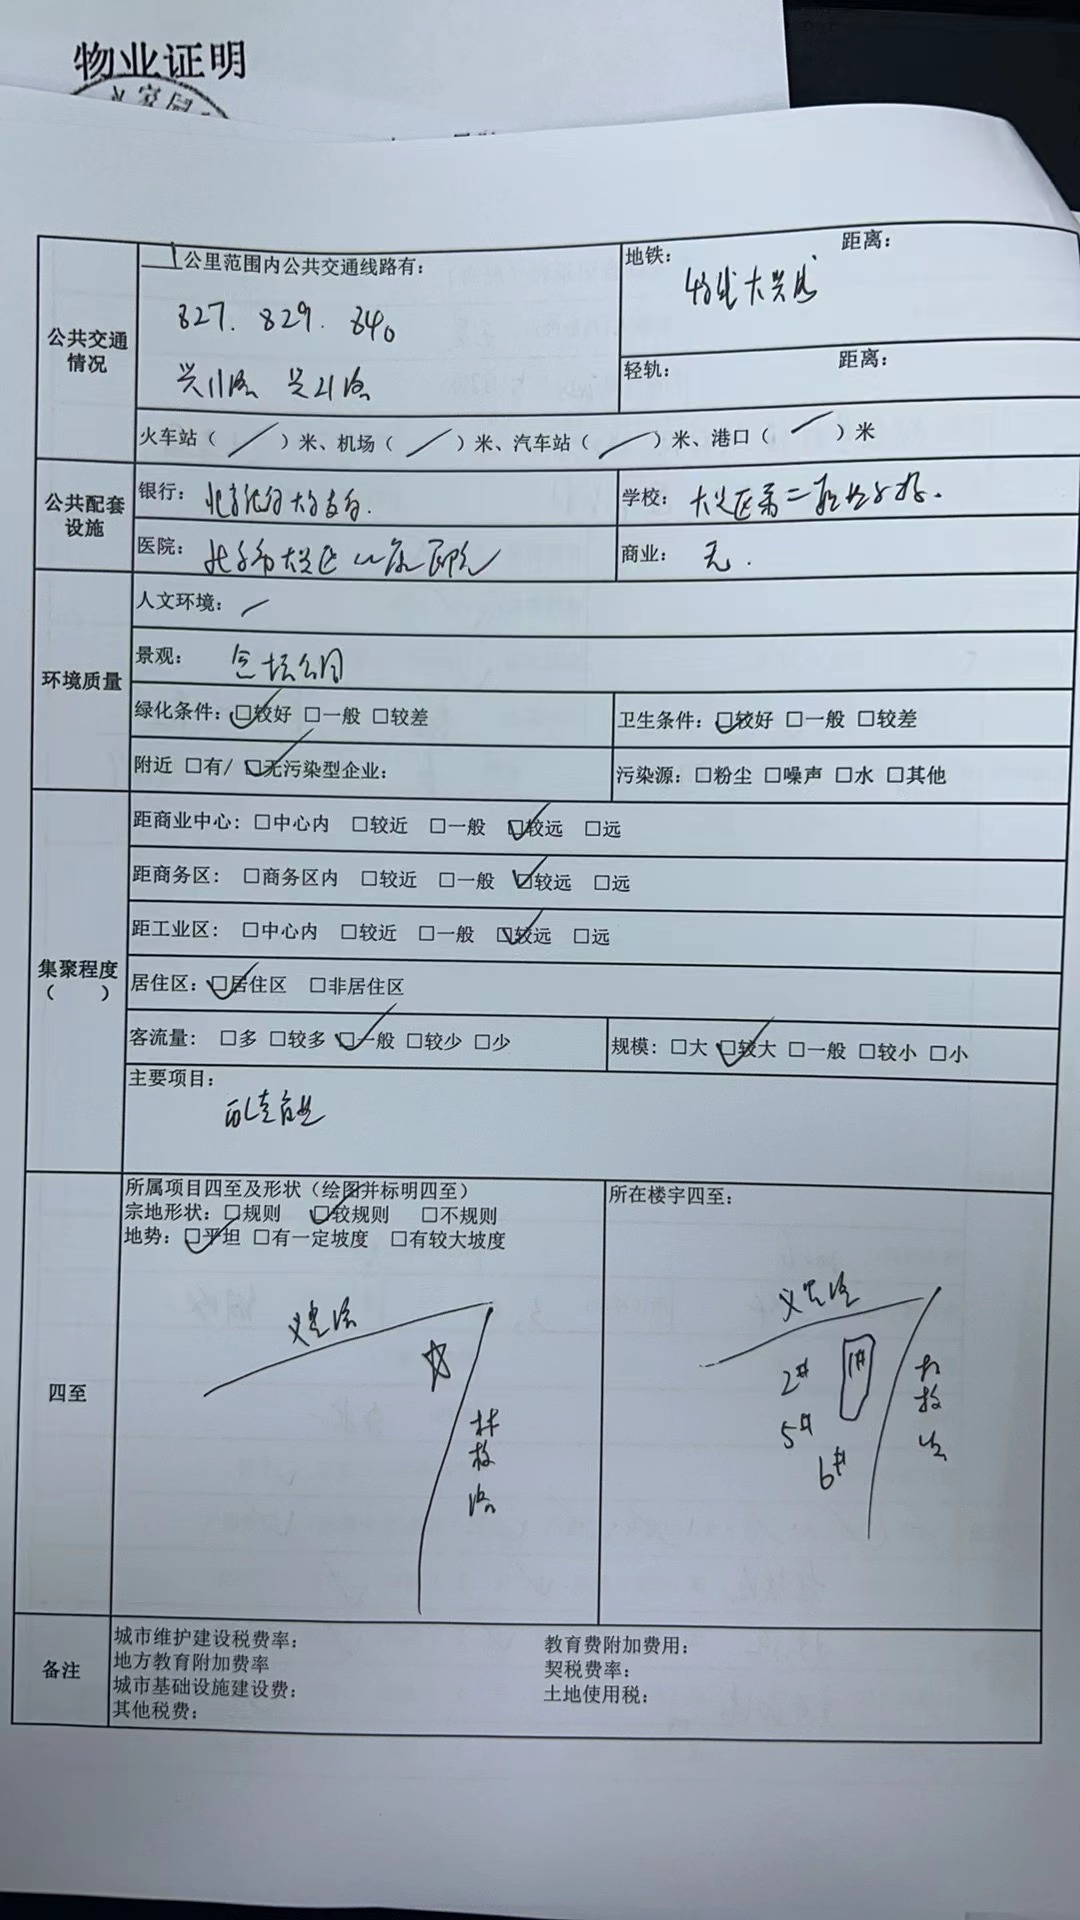 物业证明
公共交通情况
1公里范围内公共交通线路有:
827. 829. 840
兴11路 兴21路
地铁: 距离:
4号线大兴线
轻轨: 距离:
火车站( / )米、机场( / )米、汽车站( / )米、港口( / )米
公共配套设施
银行: 北京银行大兴支行.
学校: 大兴区第二
医院: 北京市大兴区人民医院
商业: 无.
环境质量
人文环境: /
景观: 公园
绿化条件: ☑较好 □一般 □较差
卫生条件: ☑较好 □一般 □较差
附近 □有/ ☑无污染型企业:
污染源: □粉尘 □噪声 □水 □其他
集聚程度
( )
距商业中心: □中心内 □较近 □一般 ☑较远 □远
距商务区: □商务区内 □较近 □一般 ☑较远 □远
距工业区: □中心内 □较近 □一般 ☑较远 □远
居住区: ☑居住区 □非居住区
客流量: □多 □较多 ☑一般 □较少 □少
规模: □大 ☑较大 □一般 □较小 □小
主要项目:
四至
所属项目四至及形状(绘图并标明四至)
宗地形状: □规则 ☑较规则 □不规则
地势: ☑平坦 □有一定坡度 □有较大坡度
林校路
所在楼宇四至:
1#
2#
5#
6#
林校路
备注
城市维护建设税费率: 教育费附加费用:
地方教育附加费率 契税费率:
城市基础设施建设费: 土地使用税:
其他税费: